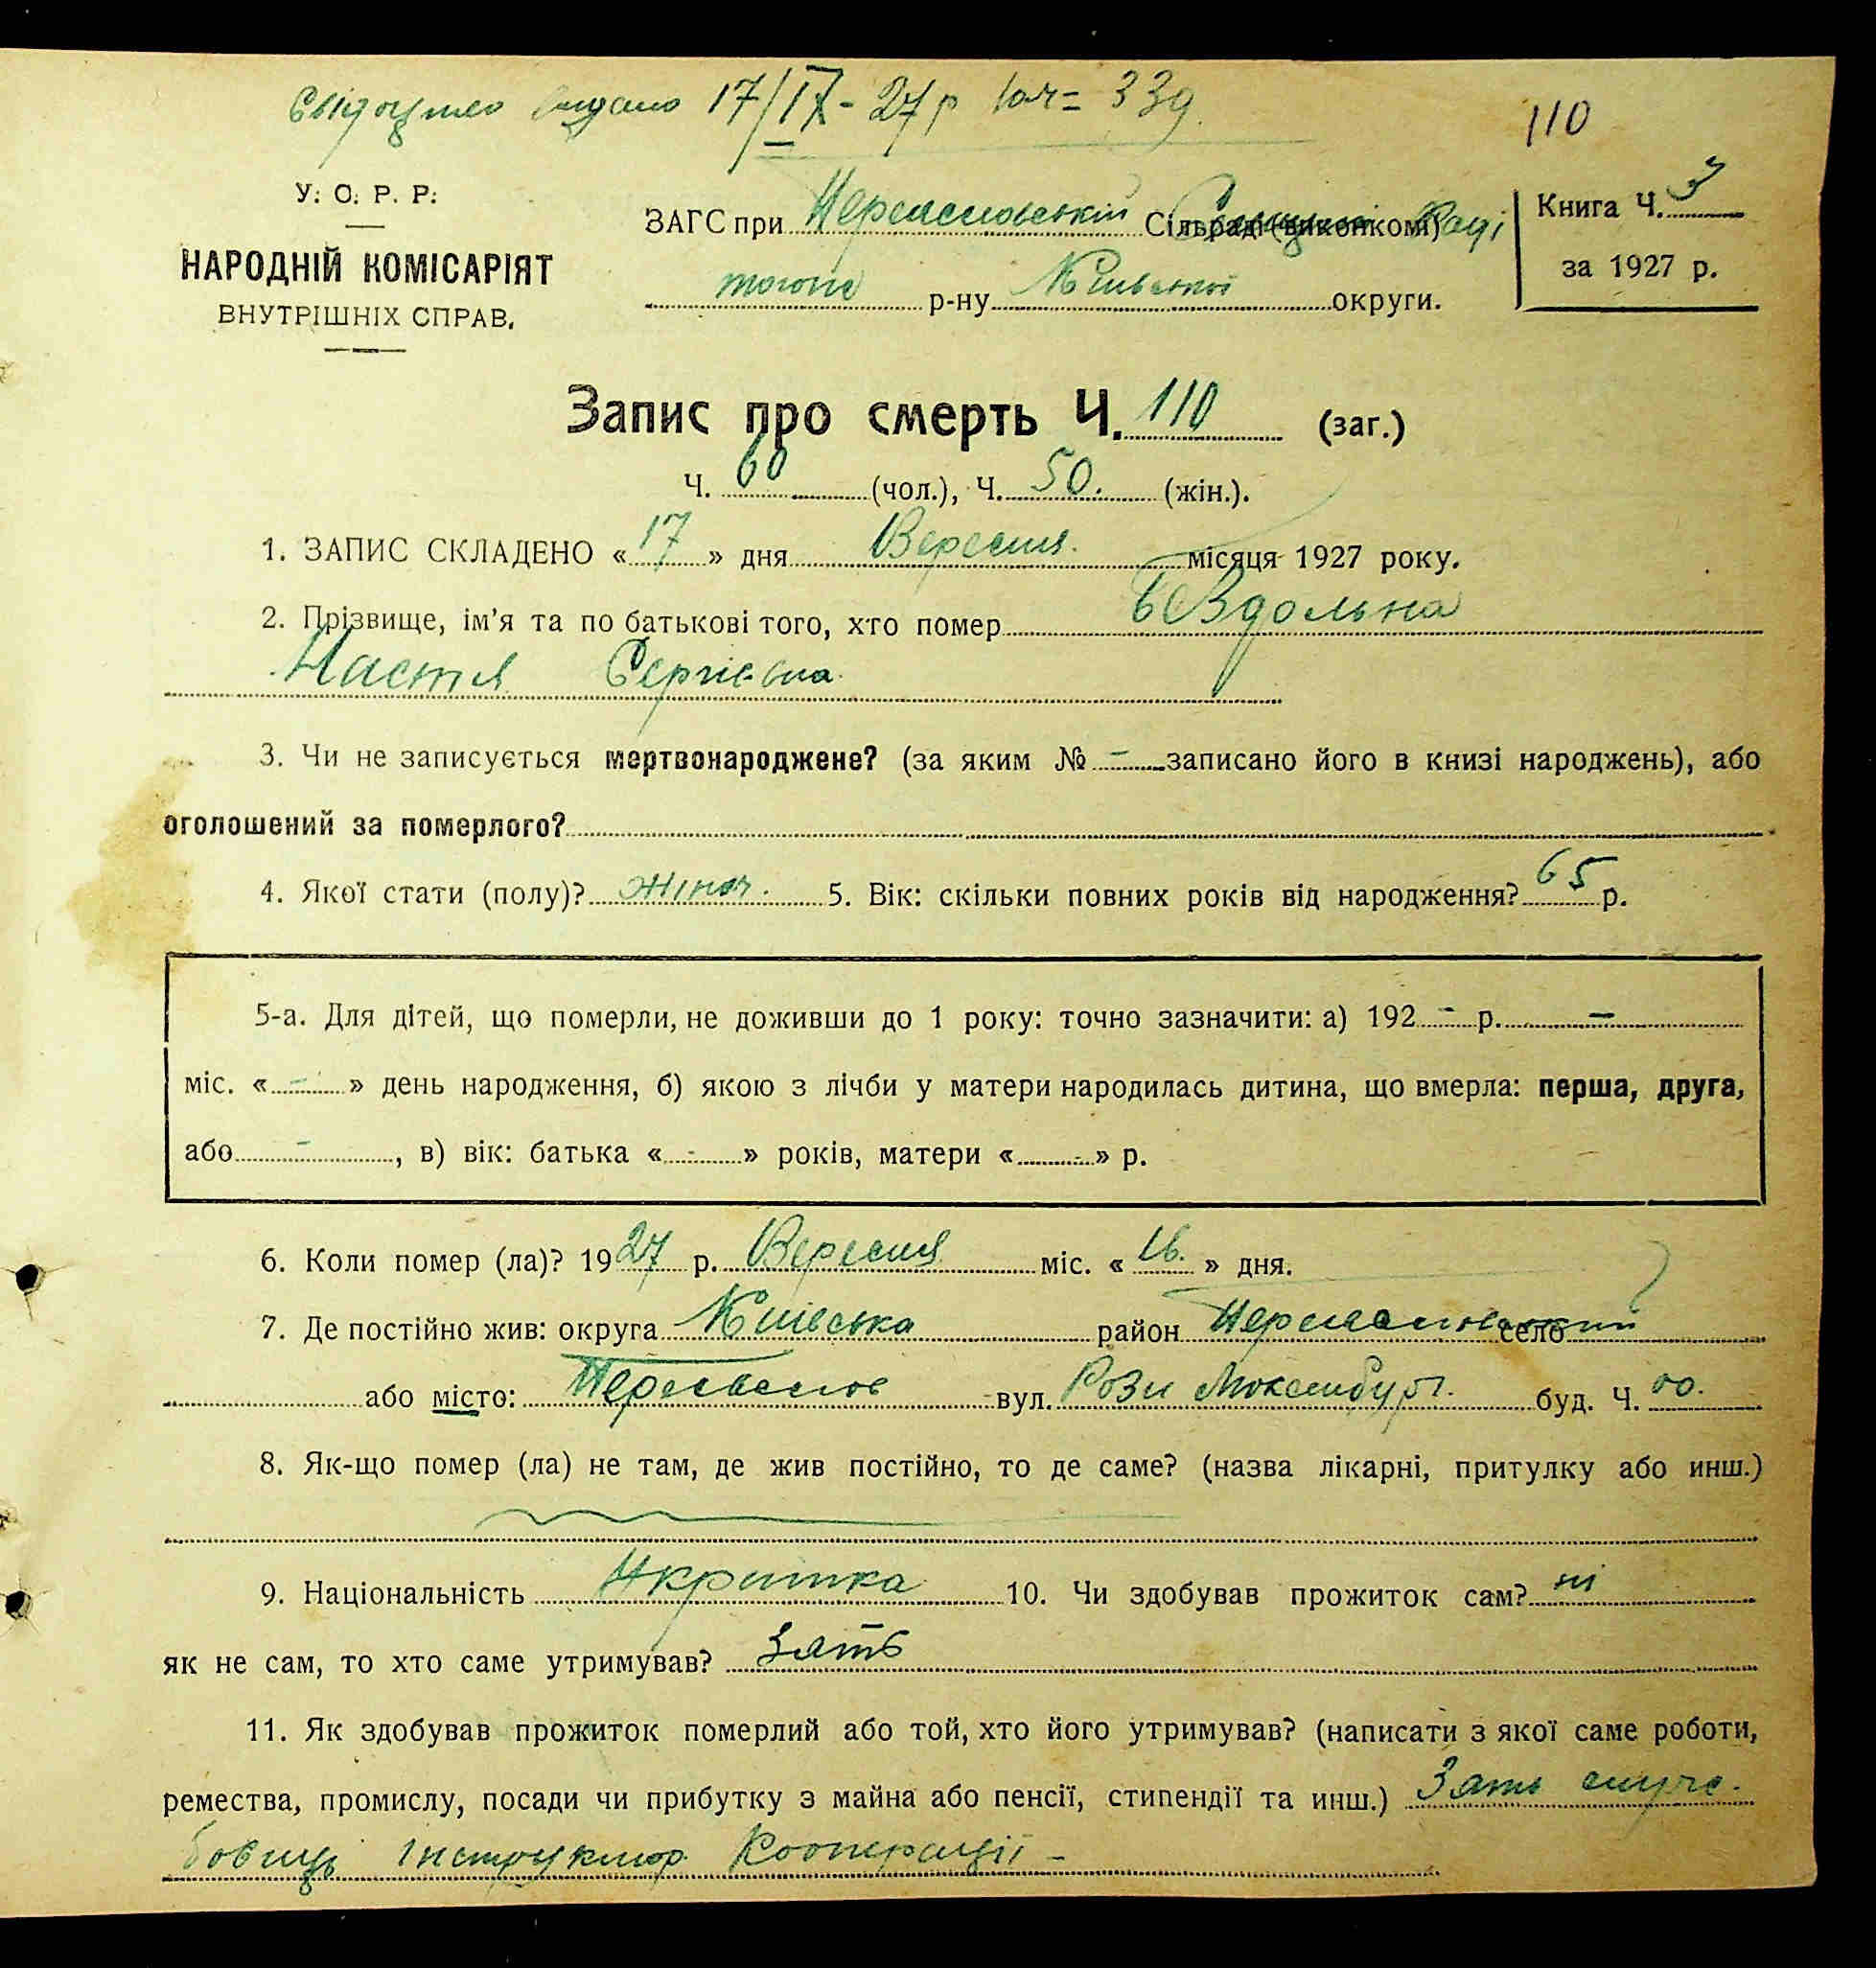 Свідоцтво видано 17/IX - 27 р
110
У. С. Р. Р.
НАРОДНІЙ КОМІСАРІЯТ
ВНУТРІШНІХ СПРАВ.
ЗАГС при Переяславській Сільраді (виконкомі) Раді
тогож р-ну Київської округи.
Книга Ч. 3
за 1927 р.
Запис про смерть Ч. 110 (заг.)
Ч. 60 (чол.), Ч. 50. (жін.).
1. ЗАПИС СКЛАДЕНО « 17 » дня Вересня. місяця 1927 року.
2. Прізвище, ім'я та по батькові того, хто помер
Настя Сергієвна
3. Чи не записується мертвонароджене? (за яким № - записано його в книзі народжень), або
оголошений за померлого?
4. Якої стати (полу)? жіноч. 5. Вік: скільки повних років від народження? 65 р.
5-а. Для дітей, що померли, не доживши до 1 року: точно зазначити: а) 192 - р. -
міс. « - » день народження, б) якою з лічби у матери народилась дитина, що вмерла: перша, друга,
або - , в) вік: батька « - » років, матери « - » р.
6. Коли помер (ла)? 1927 р. Вересня міс. « 16. » дня.
7. Де постійно жив: округа Київська район Переяславський село
або місто: Переяслов вул. Рози Люксембург. буд. Ч. 00.
8. Як-що помер (ла) не там, де жив постійно, то де саме? (назва лікарні, притулку або инш.)
9. Національність Укрїнка 10. Чи здобував прожиток сам? ні
як не сам, то хто саме утримував? Зять
11. Як здобував прожиток померлий або той, хто його утримував? (написати з якої саме роботи,
ремества, промислу, посади чи прибутку з майна або пенсії, стипендії та инш.) Зять служ-
бовець Інструктор Кооперації -